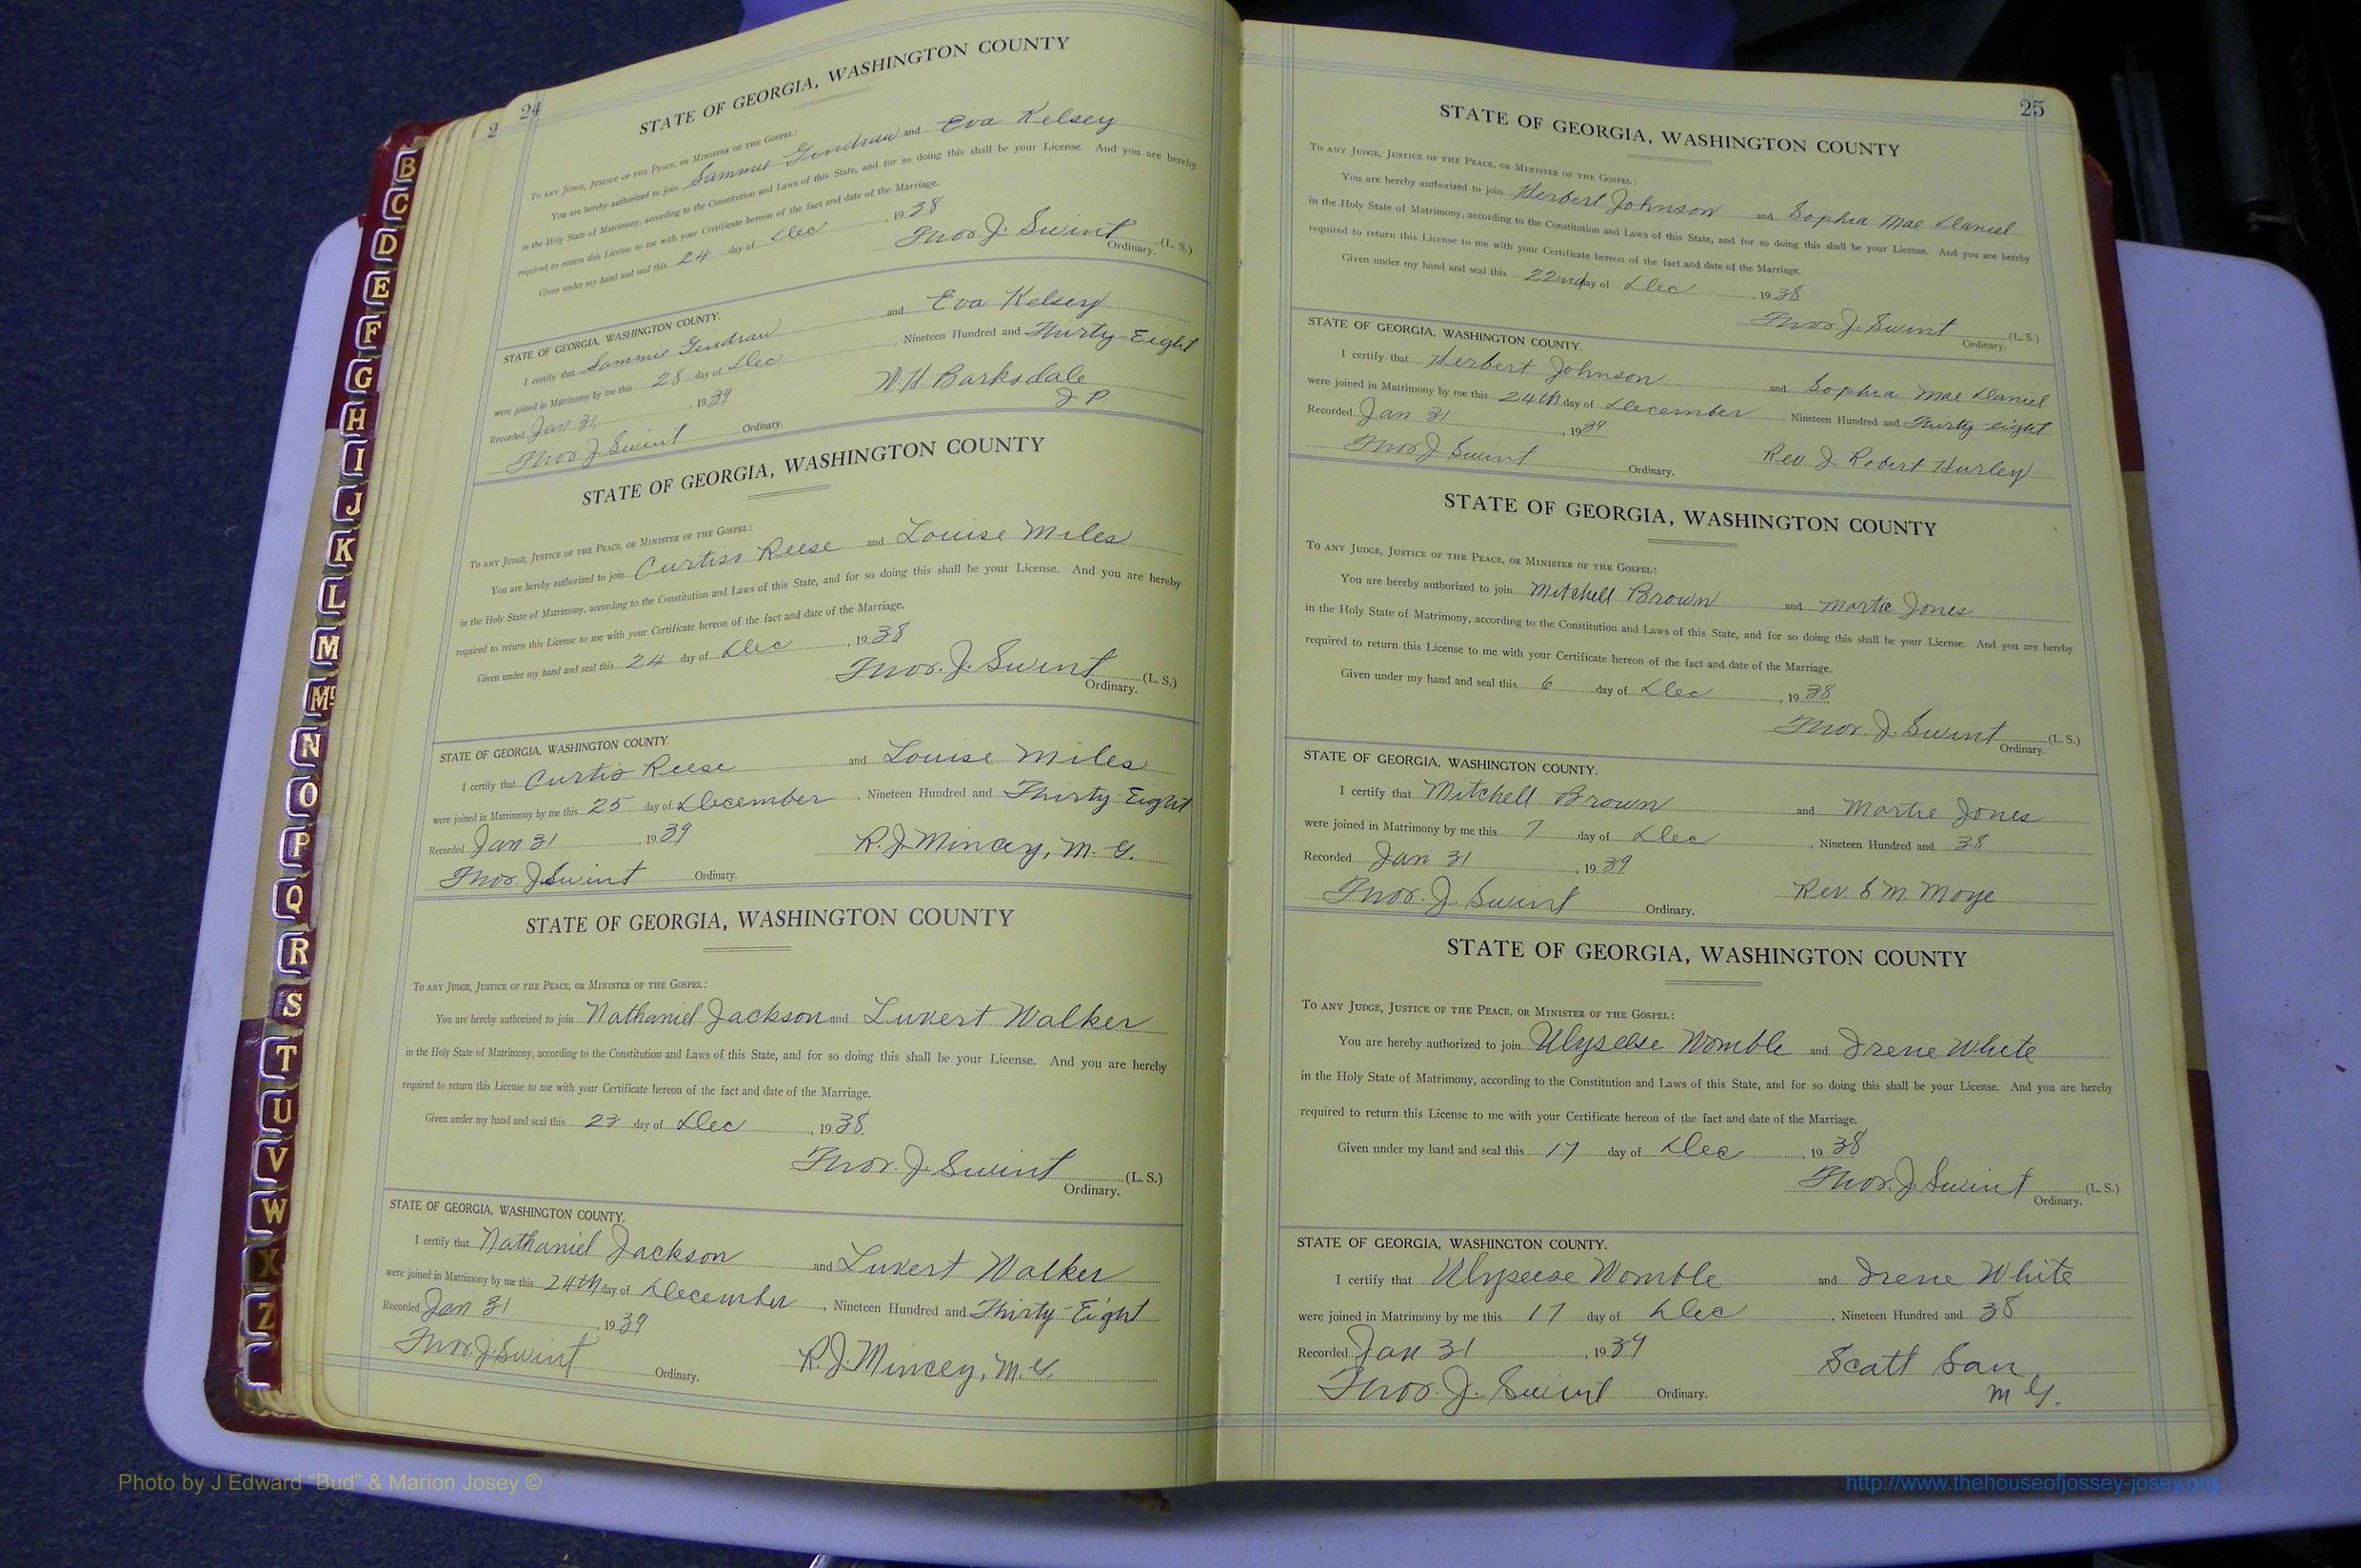 2
24
STATE OF GEORGIA, WASHINGTON COUNTY
TO ANY JUDGE, JUSTICE OF THE PEACE, OR MINISTER OF THE GOSPEL:
You are hereby authorized to join Sammie and Eva Kelsey
in the Holy State of Matrimony, according to the Constitution and Laws of this State, and for so doing this shall be your License. And you are hereby
required to return this License to me with your Certificate hereon of the fact and date of the Marriage.
Given under my hand and seal this 24 day of Dec, 1938
Thos. J. Swint (L. S.)
Ordinary.
STATE OF GEORGIA, WASHINGTON COUNTY.
I certify that Sammie and Eva Kelsey
were joined in Matrimony by me this 28 day of Dec, Nineteen Hundred and Thirty-Eight
Recorded Jan 31, 1939 W. H. Barksdale
J P
Thos J Swint Ordinary.
STATE OF GEORGIA, WASHINGTON COUNTY
TO ANY JUDGE, JUSTICE OF THE PEACE, OR MINISTER OF THE GOSPEL:
You are hereby authorized to join Curtiss Reese and Louise Miles
in the Holy State of Matrimony, according to the Constitution and Laws of this State, and for so doing this shall be your License. And you are hereby
required to return this License to me with your Certificate hereon of the fact and date of the Marriage.
Given under my hand and seal this 24 day of Dec, 1938
Thos. J. Swint (L. S.)
Ordinary.
STATE OF GEORGIA, WASHINGTON COUNTY.
I certify that Curtis Reese and Louise Miles
were joined in Matrimony by me this 25 day of December, Nineteen Hundred and Thirty-Eight
Recorded Jan 31, 1939 R. J. Mincey, M. G.
Thos. J. Swint Ordinary.
STATE OF GEORGIA, WASHINGTON COUNTY
TO ANY JUDGE, JUSTICE OF THE PEACE, OR MINISTER OF THE GOSPEL:
You are hereby authorized to join Nathaniel Jackson and Luvert Walker
in the Holy State of Matrimony, according to the Constitution and Laws of this State, and for so doing this shall be your License. And you are hereby
required to return this License to me with your Certificate hereon of the fact and date of the Marriage.
Given under my hand and seal this 23 day of Dec, 1938
Thos. J. Swint (L. S.)
Ordinary.
STATE OF GEORGIA, WASHINGTON COUNTY.
I certify that Nathaniel Jackson and Luvert Walker
were joined in Matrimony by me this 24th day of December, Nineteen Hundred and Thirty-Eight
Recorded Jan 31, 1939
Thos. J. Swint Ordinary. R. J. Mincey, M. G.
25
STATE OF GEORGIA, WASHINGTON COUNTY
TO ANY JUDGE, JUSTICE OF THE PEACE, OR MINISTER OF THE GOSPEL:
You are hereby authorized to join Herbert Johnson and Sophia Mae Daniel
in the Holy State of Matrimony, according to the Constitution and Laws of this State, and for so doing this shall be your License. And you are hereby
required to return this License to me with your Certificate hereon of the fact and date of the Marriage.
Given under my hand and seal this 22nd day of Dec, 1938
Thos J. Swint (L. S.)
Ordinary.
STATE OF GEORGIA, WASHINGTON COUNTY.
I certify that Herbert Johnson and Sophia Mae Daniel
were joined in Matrimony by me this 24th day of December, Nineteen Hundred and Thirty-eight
Recorded Jan 31, 1939
Thos J Swint Ordinary. Rev. J Robert Hurley
STATE OF GEORGIA, WASHINGTON COUNTY
TO ANY JUDGE, JUSTICE OF THE PEACE, OR MINISTER OF THE GOSPEL:
You are hereby authorized to join Mitchell Brown and Martie Jones
in the Holy State of Matrimony, according to the Constitution and Laws of this State, and for so doing this shall be your License. And you are hereby
required to return this License to me with your Certificate hereon of the fact and date of the Marriage.
Given under my hand and seal this 6 day of Dec, 1938
Thos. J. Swint (L. S.)
Ordinary.
STATE OF GEORGIA, WASHINGTON COUNTY.
I certify that Mitchell Brown and Martie Jones
were joined in Matrimony by me this 7 day of Dec, Nineteen Hundred and 38
Recorded Jan 31, 1939
Thos. J Swint Ordinary. Rev. S M. Moye
STATE OF GEORGIA, WASHINGTON COUNTY
TO ANY JUDGE, JUSTICE OF THE PEACE, OR MINISTER OF THE GOSPEL:
You are hereby authorized to join Womble and Irene White
in the Holy State of Matrimony, according to the Constitution and Laws of this State, and for so doing this shall be your License. And you are hereby
required to return this License to me with your Certificate hereon of the fact and date of the Marriage.
Given under my hand and seal this 17 day of Dec, 1938
Thos. J. Swint (L. S.)
Ordinary.
STATE OF GEORGIA, WASHINGTON COUNTY.
I certify that Womble and Irene White
were joined in Matrimony by me this 17 day of Dec, Nineteen Hundred and 38
Recorded Jan 31, 1939
Thos. J. Swint Ordinary. Scott
M G.
B
C
D
E
F
G
H
I
J
K
L
M
Mc
N
O
P
Q
R
S
T
U
V
W
X
Z
Photo by J Edward "Bud" & Marion Josey ©
http://www.thehouseofjossey-josey.org